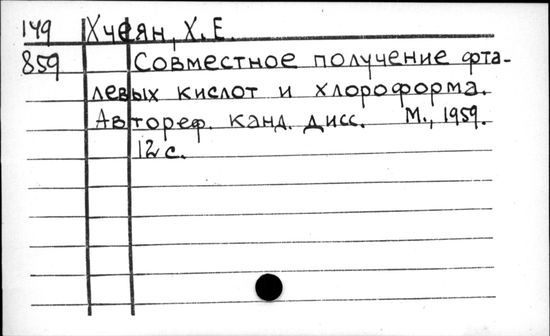 149 Хчеян, Х. Е.
859 Совместное получение фта-
левых кислот и хлороформа.
Автореф. канд. дисс. М., 1959.
12 с.